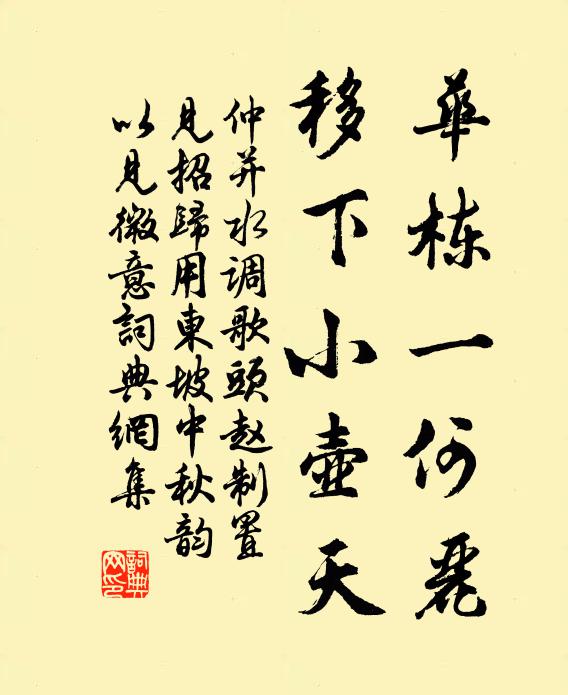 華栋一何麗
移下小壺天
仲并水调歌頭赵制置
見招歸用東坡中秋韵
以見微意詞典網集
詞典
网印